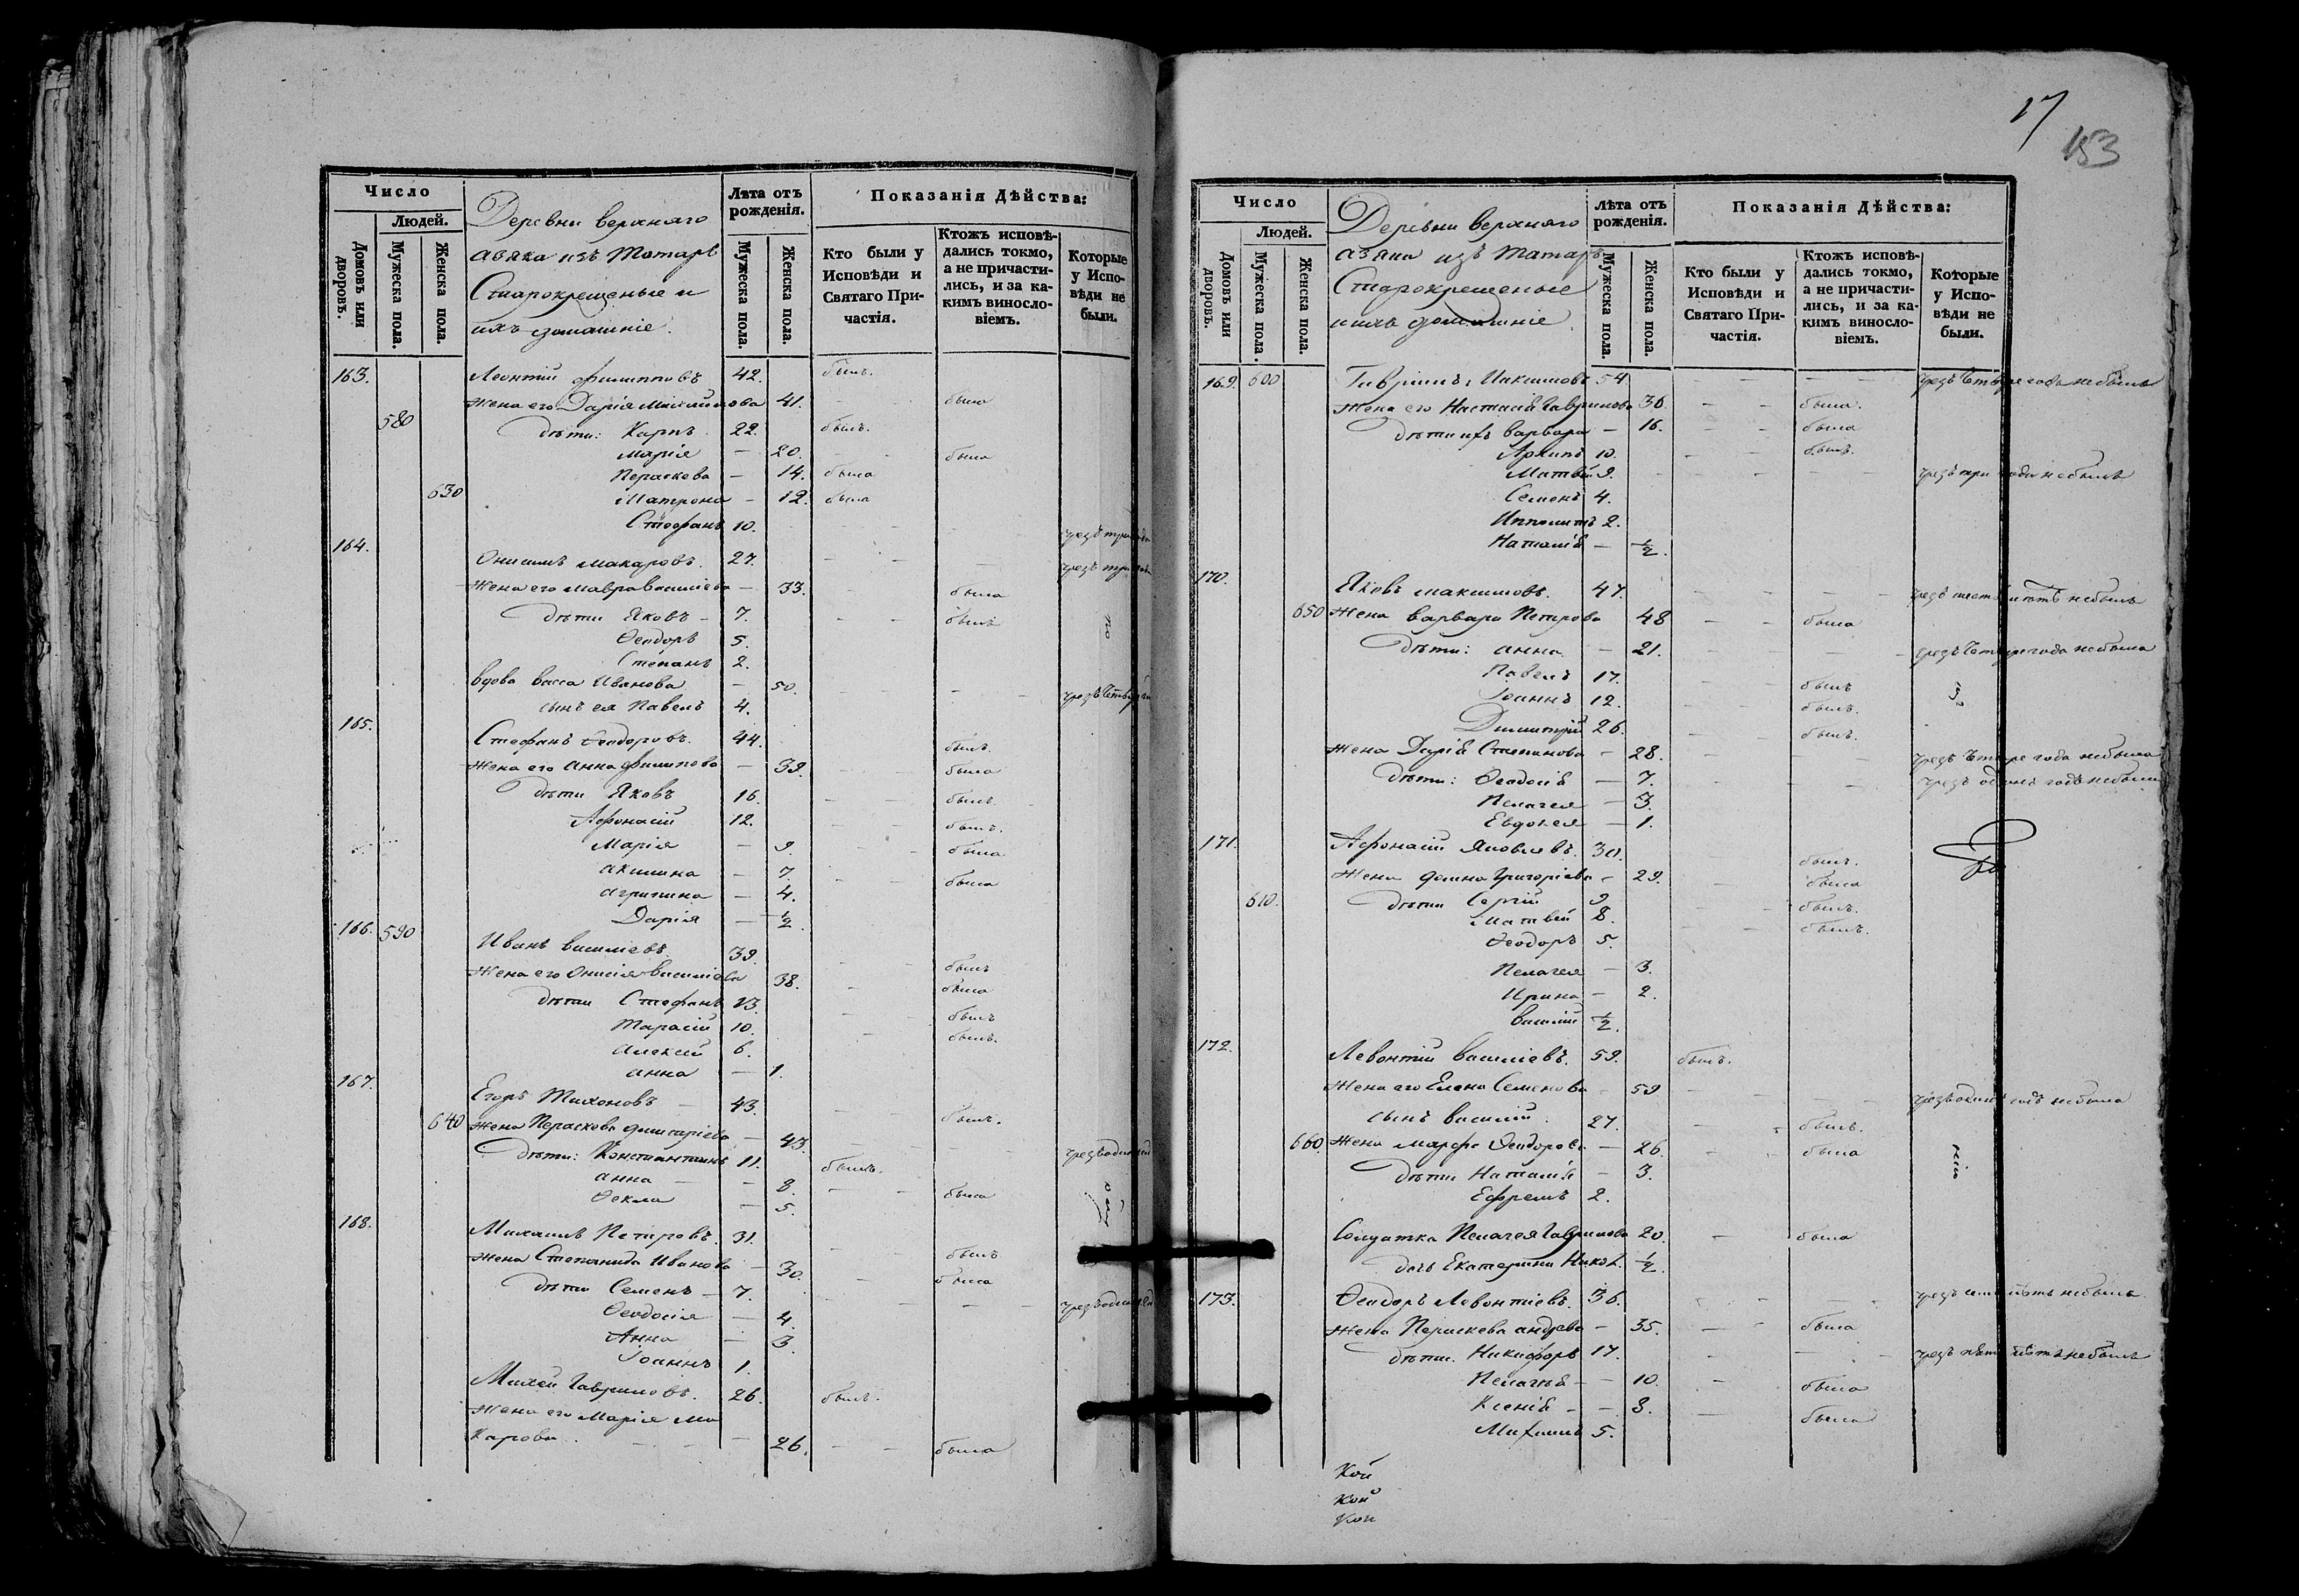 Число
Людей.
Домовъ или дворовъ.
Мужеска пола.
Женска пола.
Деревни верхняго
азяка изъ Татаръ
Старокрещеные и
ихъ домашніе.
Лѣта отъ рожденія.
Мужеска пола.
Женска пола.
Показанія Дѣйства:
Кто были у Исповѣди и Святаго Причастія.
Ктожъ исповѣдались токмо, а не причастились, и за какимъ винословіемъ.
Которые у Исповѣди не были.
163. Леонтій Филипповъ 42. былъ.
жена его Дарія Михайлова 41. – была
580 дѣти: Карпъ 22. былъ.
Марія – 20. – была
Пераскева – 14. была
630 Матрона – 12. была
Стефанъ 10.
164. Онисимъ Макаровъ. 27.
жена его Мавра Василіева – 33. – была
дѣти Яковъ – 7. – – былъ
Ѳеодоръ 5.
Степанъ 2.
вдова Васса Иванова – 50.
сынъ ея Павелъ 4.
165. Стефанъ Ѳеодоровъ. 44. былъ.
жена его Анна Филипова – 39. – была
дѣти Яковъ 16. – – былъ.
Афонасій 12. – – былъ.
Марія – 9. – – была
Акилина – 7. – – была
Агрипина – 4.
Дарія – ½
166. 590 Иванъ Василіевъ. 39. – – былъ
Жена его Онисія Василіева 38. – была
дѣти Стефанъ 13. – былъ
Тарасій 10. – – былъ.
Алексій 6.
Анна – 1.
167. Егоръ Тихоновъ – 43. – былъ.
640 жена Пераскева Димитріева – 43.
дѣти: Константинъ 11. былъ.
Анна – – 8. – – была
Ѳекла – 5.
168. Михаилъ Петровъ. 31. – былъ
жена Степанида Иванова – 30. – была
дѣти Семенъ – 7.
Ѳеодосія – 4.
Анна – 3.
Іоаннъ 1.
Михей Гавриловъ. 26. былъ.
Жена его Марія Ма
карова. – – – 26. – – была
17
153
Число
Людей.
Домовъ или дворовъ.
Мужеска пола.
Женска пола.
Деревни верхняго
азяка изъ Татаръ
Старокрещеные
и ихъ домашніе
Лѣта отъ рожденія.
Мужеска пола.
Женска пола.
Показанія Дѣйства:
Кто были у Исповѣди и Святаго Причастія.
Ктожъ исповѣдались токмо, а не причастились, и за какимъ винословіемъ.
Которые у Исповѣди не были.
169. 600 Гавріилъ 54 – – – – чрезъ четыре года небылъ
жена его Настасія Гаврилова 36. – – была.
дѣти ихъ Варвара – 16. – – была
Архипъ 10. – – былъ.
Матвій 9. – – – – чрезъ три года небылъ
Семенъ 4.
Ипполитъ 2.
Наталія – ½.
170. Яковъ Максимовъ. 47. – – – – чрезъ шесть лѣтъ небылъ
650 жена Варвара Петрова 48 – – была
дѣти: Анна – 21. – – – – чрезъ четыре года небыла
Павелъ 17. – – былъ
Іоаннъ 12. – – былъ.
Димитрій 26. – – былъ.
жена Дарія Степанова – 28. – – – – чрезъ четыре года небыла
дѣти: Ѳеодосія – 7. – – – – чрезъ одинъ годъ небыла
Пелагея – 3.
Евдокея – 1.
171. Афонасій Яковлевъ. 30. – былъ.
Жена Домна Григоріева – 29. – была
610. дѣти Сергій 9 – былъ.
Матвій 8. – – былъ.
Ѳеодоръ 5.
Пелагея – 3.
Ирина – 2.
Василій ½.
172. Левонтій Василіевъ. 59. былъ.
Жена его Елена Семенова – 59 – – – – чрезъ одинъ годъ небыла
сынъ Василій. 27. – – былъ.
660. Жена Марфа Ѳеодорова – 26. – – была
дѣти Наталія – 3.
Ефремъ 2.
Солдатка Пелагея Гаврилова 20. – была
дочь Екатерина Никол. ½.
173. Ѳеодоръ Левонтіевъ. 36. – – – – небылъ
жена Пераскева Андрева – 35. – – была
дѣти. Никифоръ 17. – – – – чрезъ пять лѣтъ небылъ
Пелагія – – 10. – была
Ксенія – – 8. – была
Михаилъ 5.
Кой
Кой
Кой